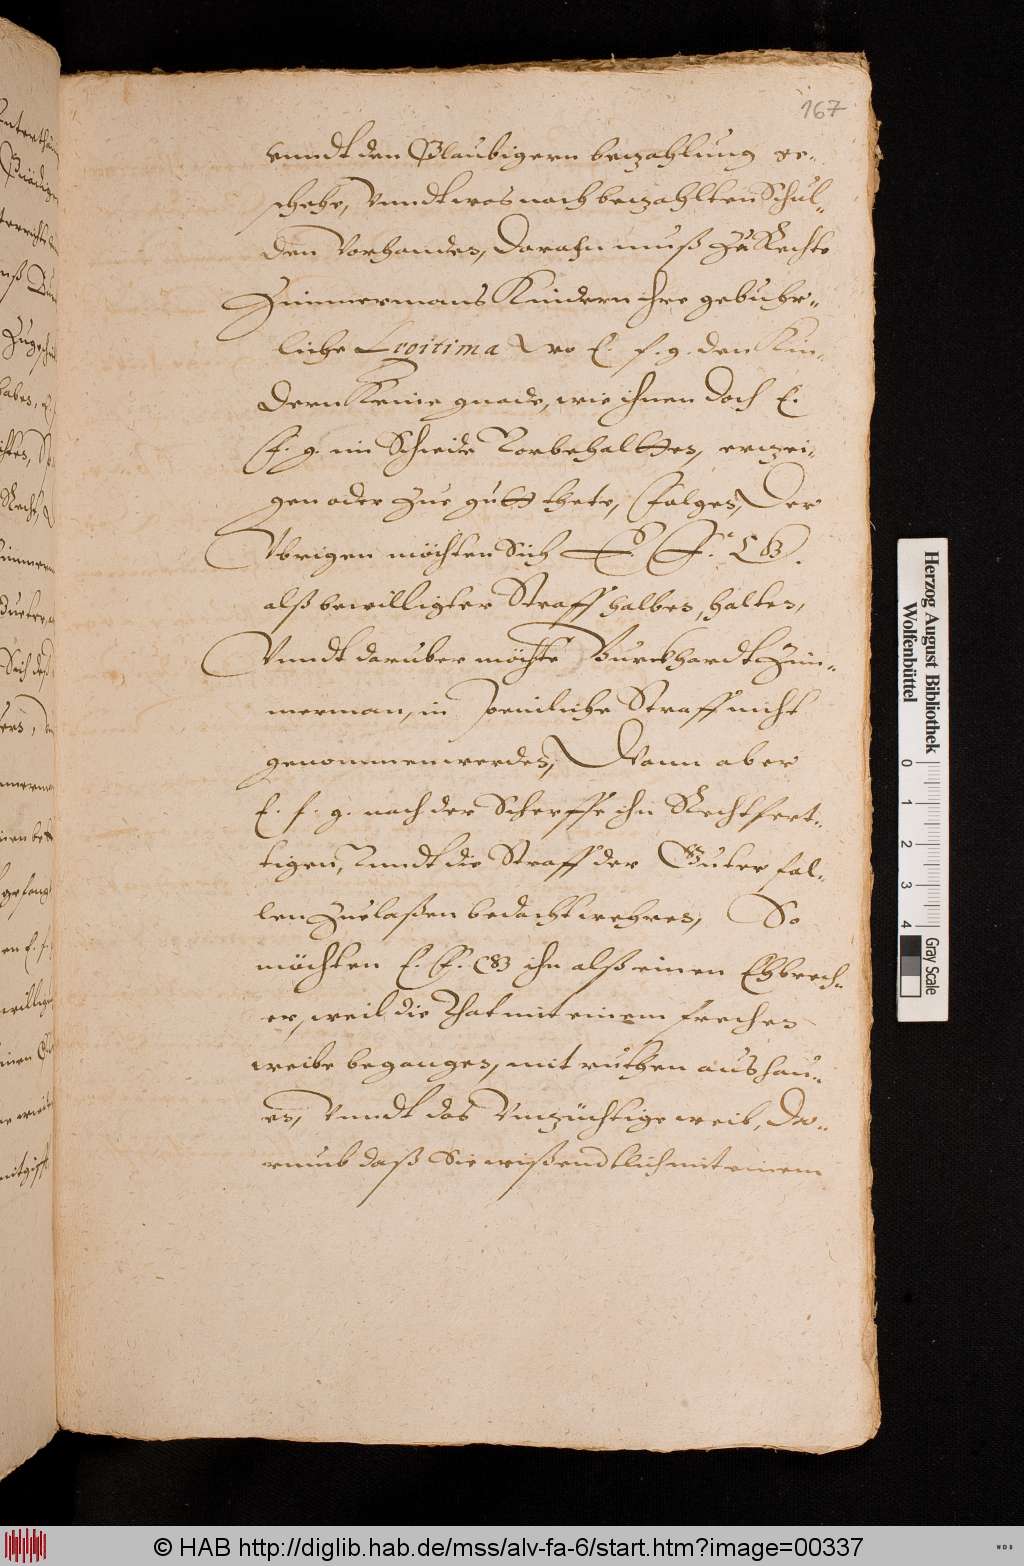 167
vnndt den Glaubigern bezahlung ge-
schehe, Vnndt was nach bezahlten Schul-
den Vorhanden, daraŋn muß Zu Rechte
Zimmermans Kindern ihre gebuhr-
liche Legitima Wo E. f. g. den Kin-
dern Keine gnade, wie ihnen doch E.
F. g. im Scheide Vorbehaltten, erzei-
gen oder Zue gutt thete, folgen, Der
Vbrigen möchten Sich E. F. G.
alß bewilligter Straff halben, halten,
Vnndt daruber möchte Burckhardt Zim-
merman, in peinliche Straff nicht
genommen werden, Wann aber
E. f. g. nach der Scherffe ihn Rechtfert-
tigen, Vnndt die Straff der Guter fal-
len Zuelaßen bedacht wehren, So
möchten E. F. G ihn alß einen Ehbrech-
er, weil die That mit einem frechen
weibe begangen, mit ruthen aushau-
en, Vnndt das Vnzüchtige weib, Da-
rumb daß Sie wißendtlich mit einem
Herzog August Bibliothek
Wolfenbüttel
0 1 2 3 4
Gray Scale
© HAB http://diglib.hab.de/mss/alv-fa-6/start.htm?image=00337